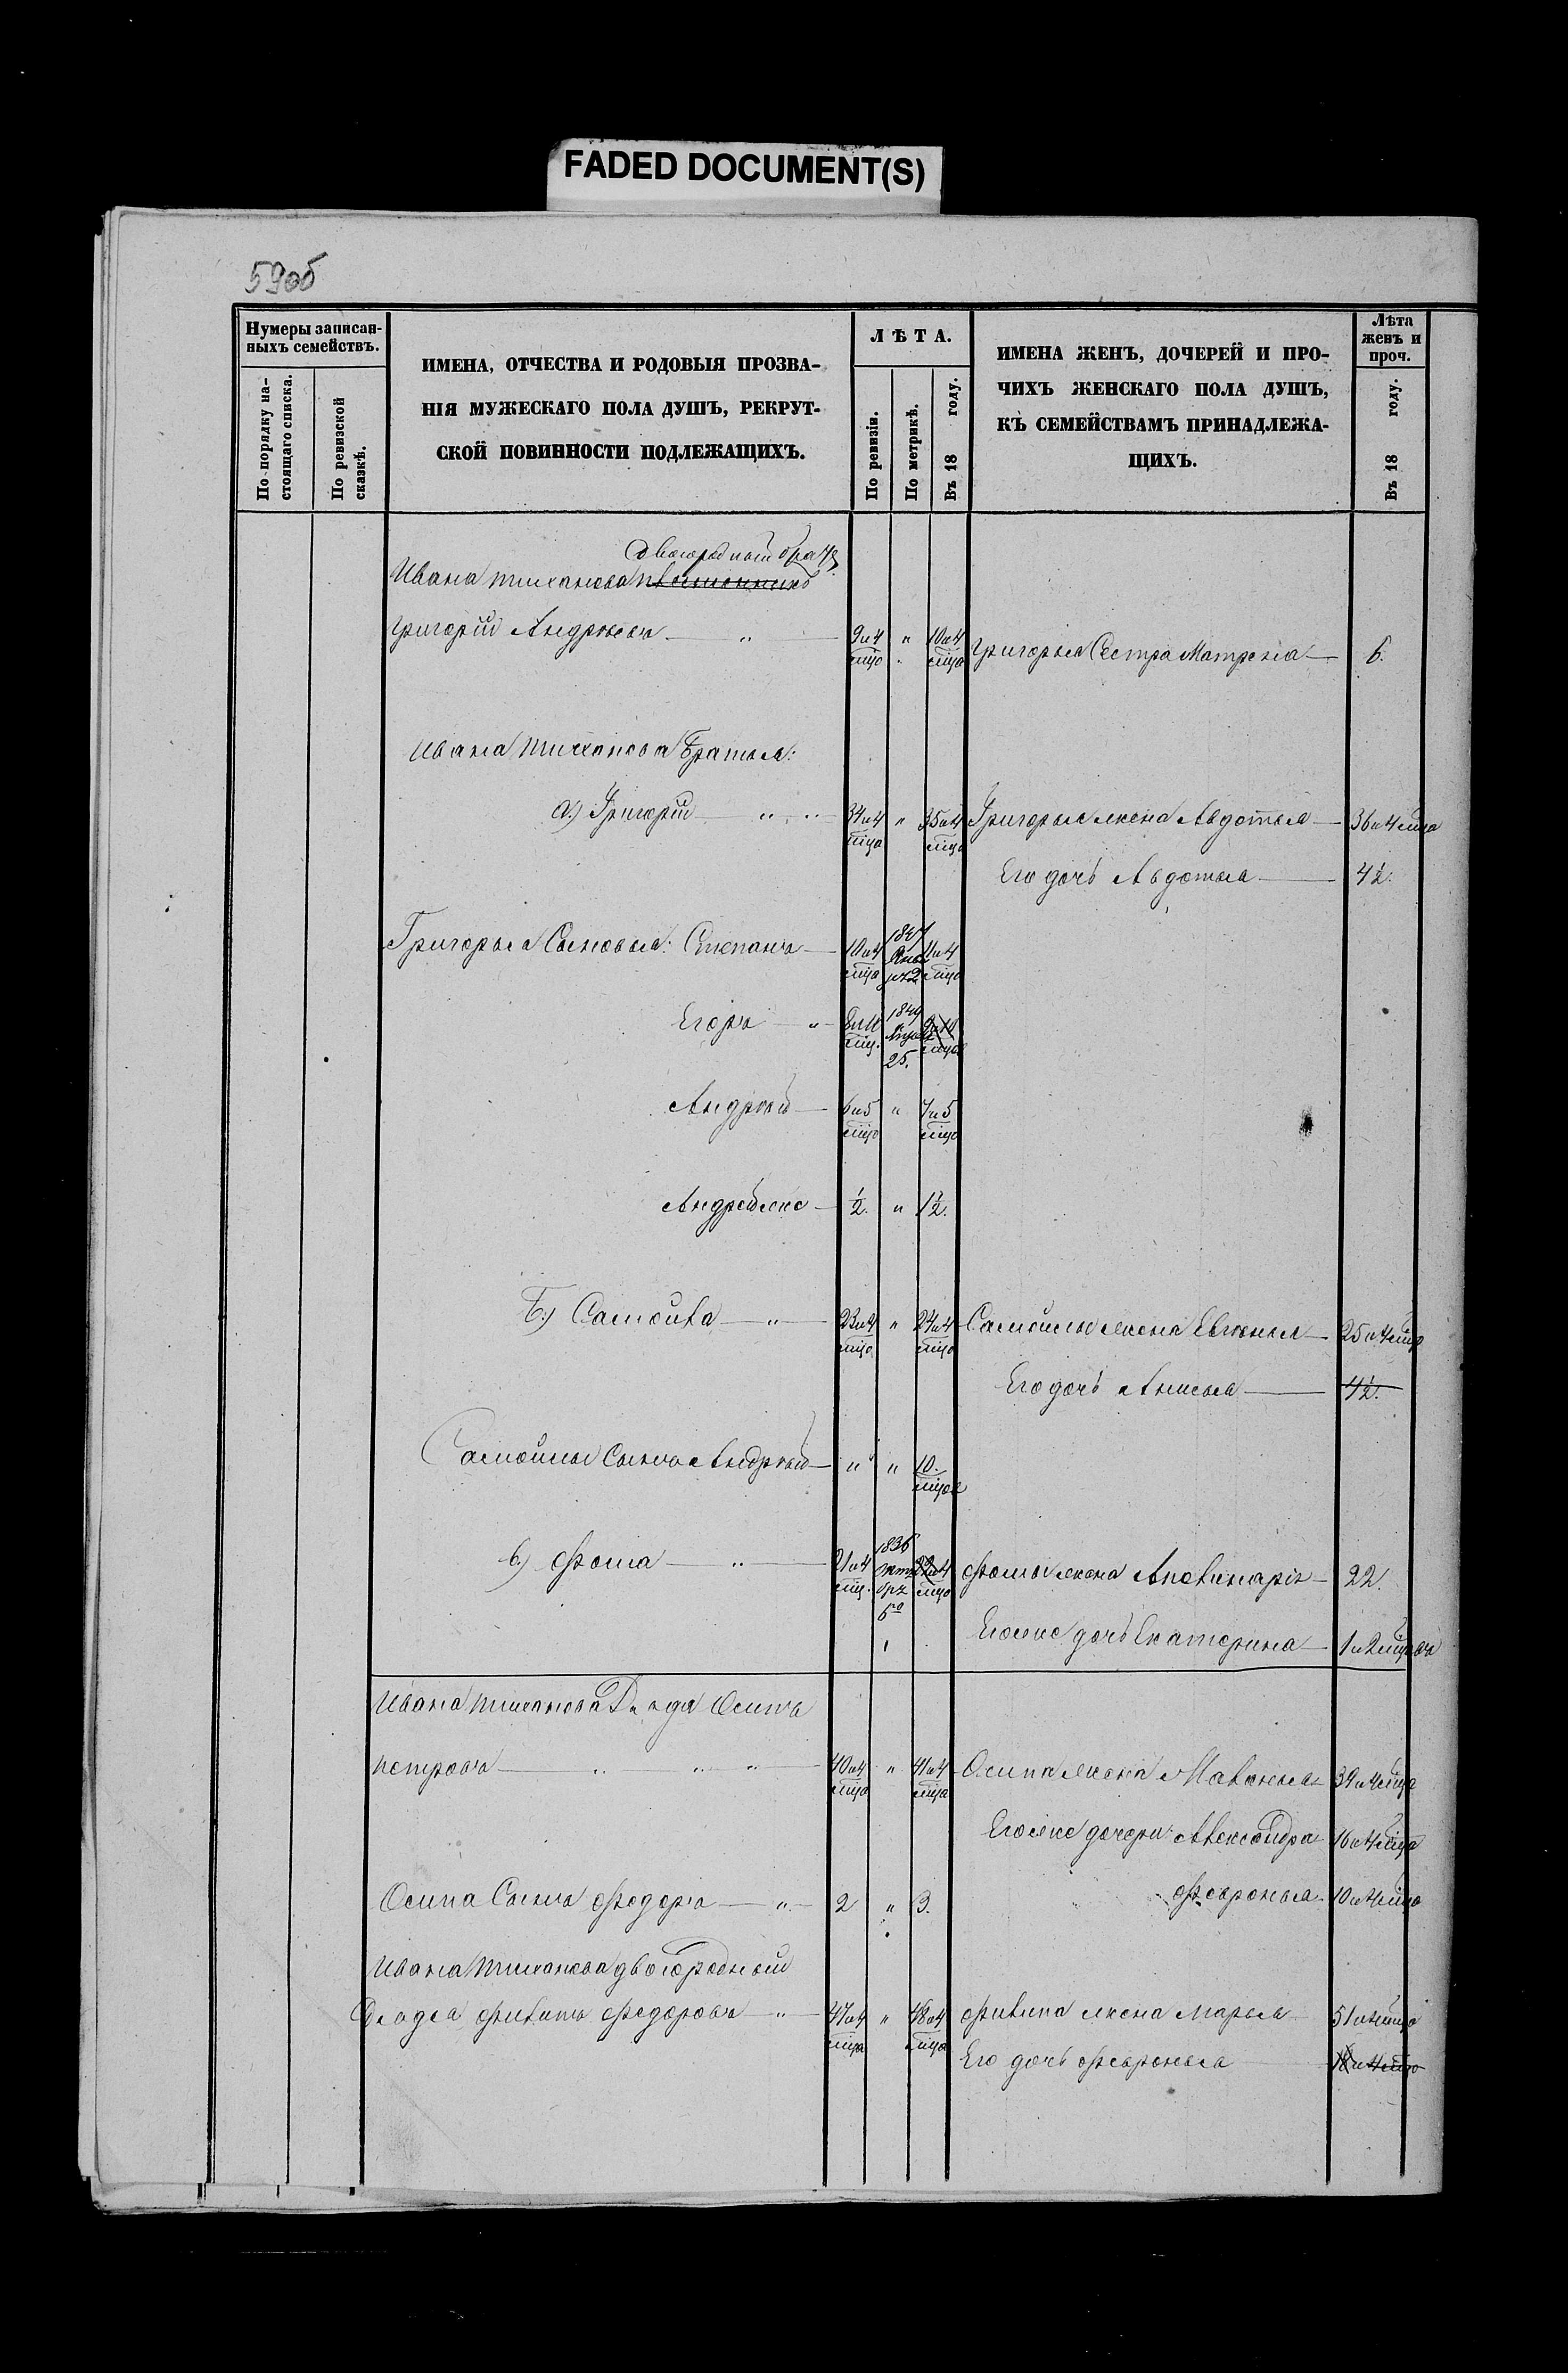 FADED DOCUMENT(S)
59об
Нумеры записан-
ныхъ семействъ.
По порядку на-
стоящаго списка.
По ревизской
сказкѣ.
ИМЕНА, ОТЧЕСТВА И РОДОВЫЯ ПРОЗВА-
НІЯ МУЖЕСКАГО ПОЛА ДУШЪ, РЕКРУТ-
СКОЙ ПОВИННОСТИ ПОДЛЕЖАЩИХЪ.
ЛѢТА.
По ревизіи.
По метрикѣ.
Въ 18 году.
ИМЕНА ЖЕНЪ, ДОЧЕРЕЙ И ПРО-
ЧИХЪ ЖЕНСКАГО ПОЛА ДУШЪ,
КЪ СЕМЕЙСТВАМЪ ПРИНАДЛЕЖА-
ЩИХЪ.
Лѣта
женъ и
проч.
Въ 18 году.
двоюродный братъ
Ивана Тиханова племянникъ
Григорій Андреевъ — " — 9 и 4 мца " 10 и 4 мца Григорья Сестра Матрена — 6.
Ивана Тиханова Братья:
а) Григорій " " 34 и 4 мца " 35 и 4 мца Григорья жена Авдотья — 36 и 4 мца
Его дочь Авдотья — 4½.
Григорья Сыновья: Степанъ — 10 и 4 мца 1847 11 и 4 мца
Егоръ — " 8 и 11 мц. 1849 25. 9 и 11 мцов
Андрей — 6 и 5 мцо " 7 и 5 мцо
Андрей же — ½. " 1½.
Б.) Самойла — " — 23 и 4 мца " 24 и 4 мца Самойлы жена Евгенья — 25 и 4 мца
Его дочь Анисья — 4½.
Самойлы Сынъ Андрей — " " 10. мцов
в.) Фома — " — 21 и 4 мц. 1836 Октября 6го 22 и 4 мца Фомы жена Аполинарія — 22.
Его же дочь Екатерина — 1 и 2 мцовъ
Ивана Тиханова Дядя Осипъ
Петровъ — " " " — 40 и 4 мца " 41 и 4 мца Осипа жена Маланья — 39 и 4 мца
Его же дочери: Александра — 16 и 4 мца
Осипа Сынъ Федоръ — " — 2 " 3. Февронья — 10 и 4 мца
Ивана Тиханова двоюродный
Дядя Филипъ Федоровъ — " — 47 и 4 мца " 48 и 4 мца Филипа жена Марья — 51 и 4 мца
Его дочь Февронья — 18 и 4 мца